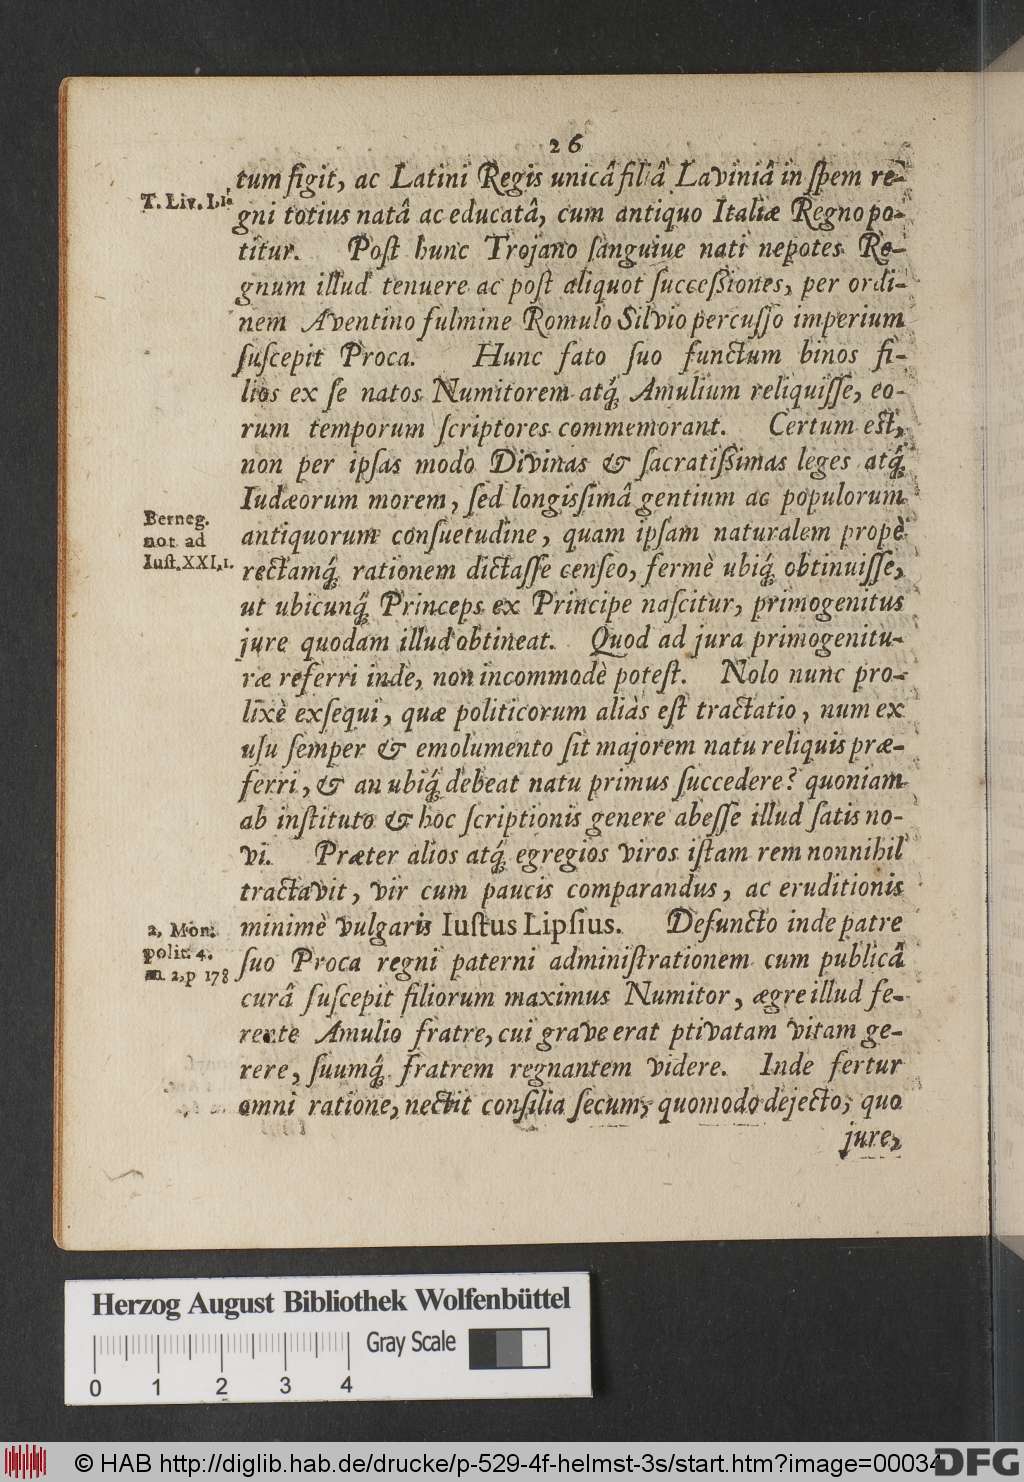 26
tum figit, ac Latini Regis unicâ filiâ Laviniâ in ſpem re-
T. Liv. I.1.
gni totius natâ ac educatâ, cum antiquo Italiæ Regno po-
titur. Poſt hunc Trojano ſanguiue nati nepotes Re-
gnum illud tenuere ac poſt aliquot ſucceſſiones, per ordi-
nem Aventino fulmine Romulo Silvio percuſſo imperium
ſuſcepit Proca. Hunc fato ſuo functum binos fi-
lios ex ſe natos Numitorem atq́; Amulium reliquiſſe, eo-
rum temporum ſcriptores commemorant. Certum eſt,
non per ipſas modo Divinas & ſacratiſſimas leges atq́;
Iudæorum morem, ſed longisſimâ gentium ac populorum
Berneg.
not ad
Iuſt.XXI,1.
antiquorum conſuetudine, quam ipſam naturalem propè
rectamq́; rationem dictaſſe cenſeo, fermè ubiq́; obtinuiſſe,
ut ubicunq́; Princeps ex Principe naſcitur, primogenitus
jure quodam illud obtineat. Quod ad jura primogenitu-
ræ referri inde, non incommodè poteſt. Nolo nunc pro-
lixè exſequi, quæ politicorum aliàs eſt tractatio, num ex
uſu ſemper & emolumento ſit majorem natu reliquis præ-
ferri, & an ubiq́; debeat natu primus ſuccedere? quoniam
ab inſtituto & hoc ſcriptionis genere abeſſe illud ſatis no-
vi. Præter alios atq́; egregios viros iſtam rem nonnihil
tractavit, vir cum paucis comparandus, ac eruditionis
2, Mon.
polit. 4.
m. 2,p 178
minimè vulgaris Iuſtus Lipſius. Defuncto inde patre
ſuo Proca regni paterni adminiſtrationem cum publicâ
curâ ſuſcepit filiorum maximus Numitor, ægre illud fe-
rente Amulio fratre, cui grave erat ptivatam vitam ge-
rere, ſuumq́; fratrem regnantem videre. Inde fertur
omni ratione, nectit conſilia ſecum, quomodo dejecto, quo
jure,
Herzog August Bibliothek Wolfenbüttel
Gray Scale
0 1 2 3 4
© HAB http://diglib.hab.de/drucke/p-529-4f-helmst-3s/start.htm?image=00034
DFG